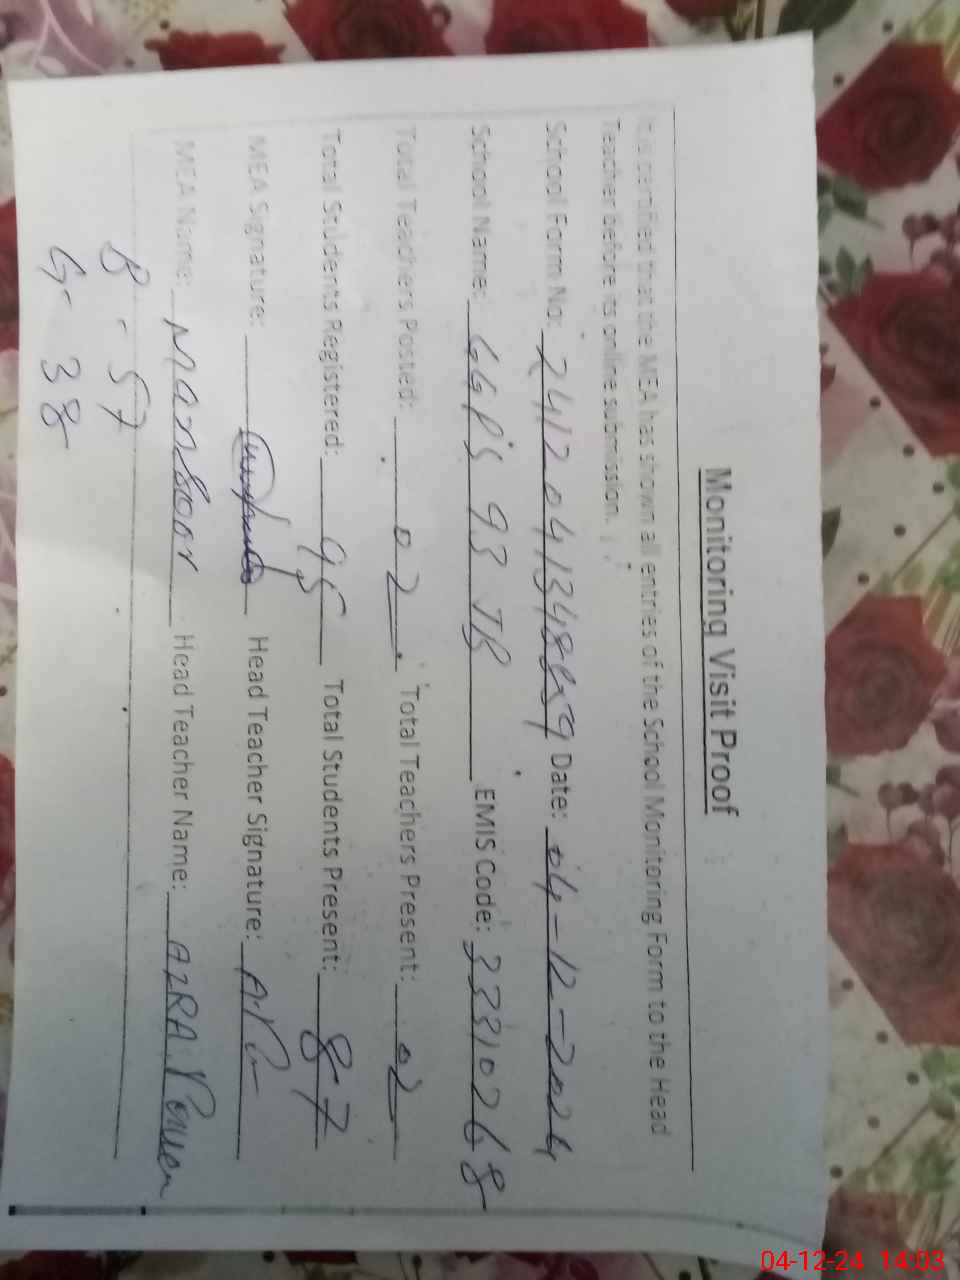 Monitoring Visit Proof
It is certified that the MEA has shown all entries of the School Monitoring Form to the Head
Teacher before its online submission.
School Form No: Date: 04-12-2024
School Name: GGPS 93 JB EMIS Code: 33310268
Total Teachers Posted: 02 Total Teachers Present: 02
Total Students Registered: 95 Total Students Present: 87
MEA Signature: Head Teacher Signature:
MEA Name: Manzoor Head Teacher Name: AZRA Parveen
B - 57
G - 38
04-12-24 14:03